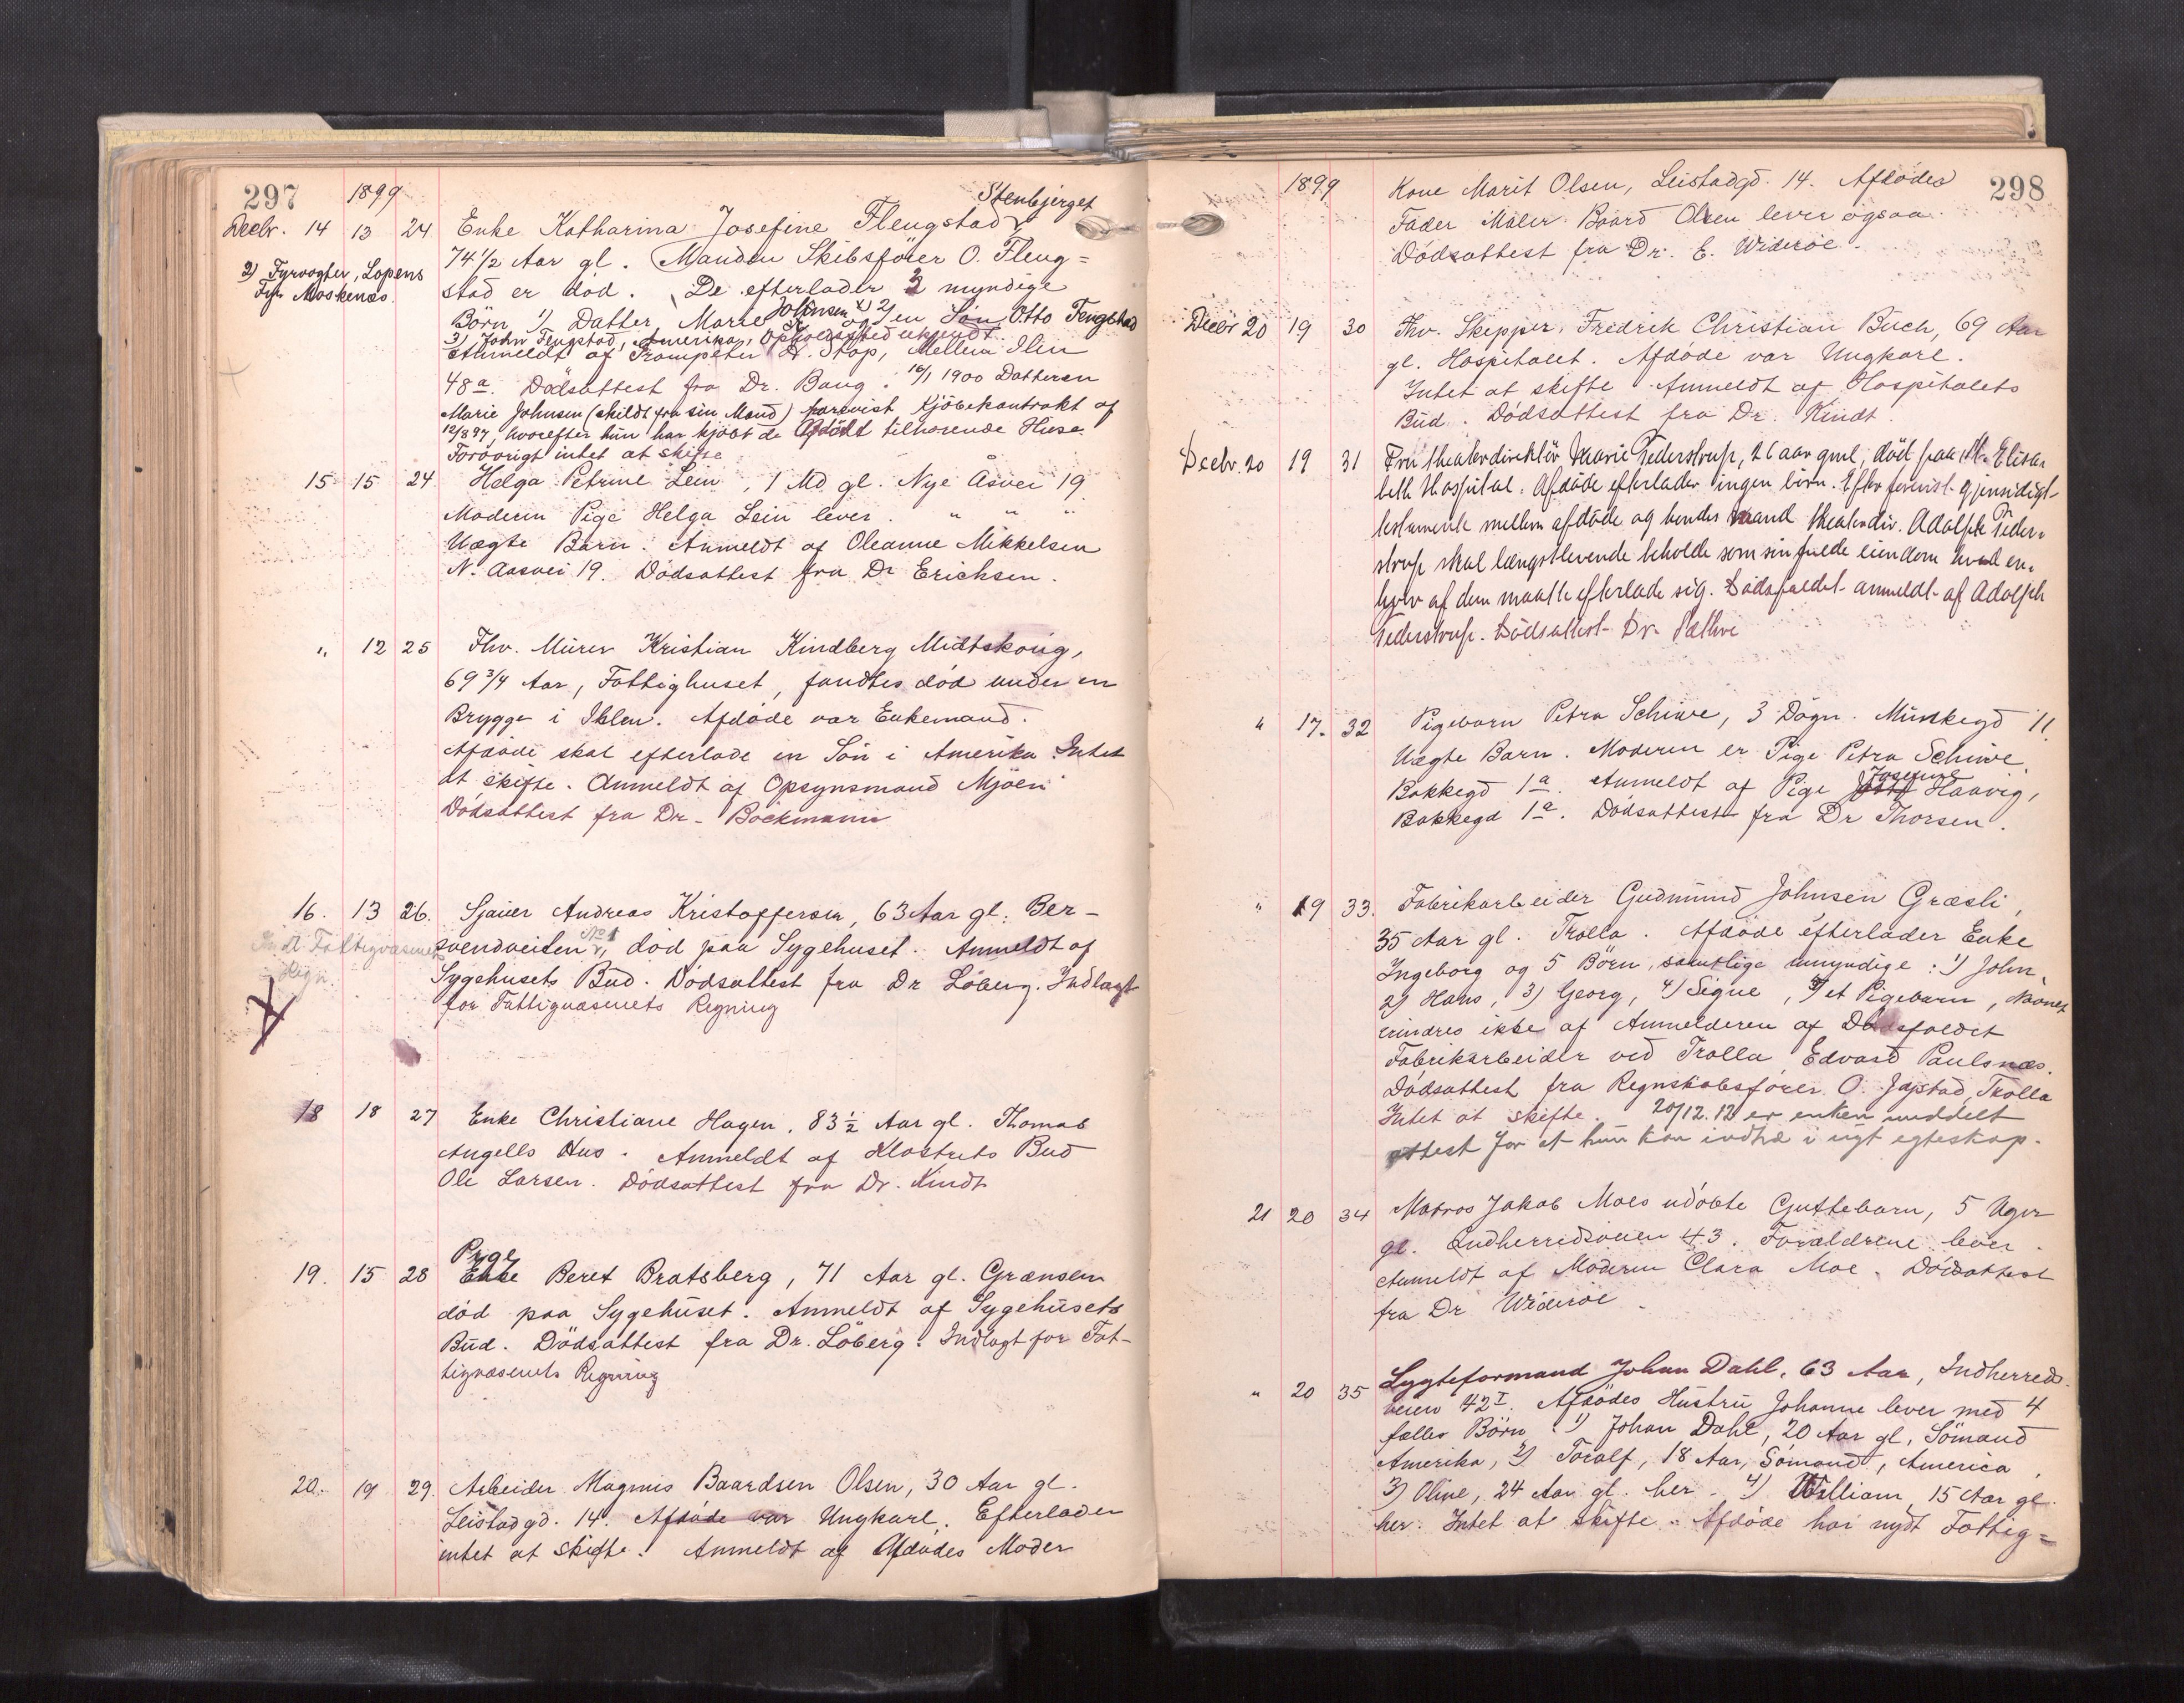 297 1899
Stenbjerget
Decbr. 14 13 24 Enke Katharina Josefine Flengstad
74 1/2 Aar gl. Manden Skibsfører O. Fleng=
2) Fyrvogter, Lopens
Fyr Moskenæs.
stad er død. De efterlader 3 myndige
Børn 1) Datter, Marie Johnsen og 2) en Søn Otto Fengstad
3) John Fengstad, Amerika, Opholdssted ukjendt.
Anmeldt af Trompeter A. Stap, Mellem Ilen
48a. Dødsattest fra Dr. Bang. 16/1 1900 Datteren
Marie Johnsen (skildt fra sin Mand) forevist Kjöbekontrakt af
12/8 97, hvorefter hun har kjöbt de Afdöde tilhørende Huse.
Forøvrigt intet at skifte
15 15 24 Helga Petrine Lein, 1 Md gl. Nye Åsvei 19
Moderen Pige Helga Lein lever. " " "
Uægte Barn. Anmeldt af Oleanne Mikkelsen
N. Aasvei 19. Dödsattest fra Dr Erichsen.
" 12 25 Fhv. Murer Kristian Kindberg Midtskoug,
69 3/4 Aar, Fattighuset, fandtes död under en
Brygge i Ihlen. Afdöde var Enkemand.
Afdöde skal efterlade en Sön i Amerika. Intet
at skifte. Anmeldt af Opsynsmand Mjöen
Dödsattest fra Dr. Böckmann
16. 13 26. Sjauer Andreas Kristoffersen, 63 Aar gl. Ber-
Ind. Fattigvæsenets
Regn.
svendveiten No 1, död paa Sygehuset. Anmeldt af
Sygehusets Bud. Dödsattest fra Dr Löberg. Indlagt
for Fattigvæsenets Regning
18 18 27 Enke Christiane Hagen, 83 1/2 Aar gl. Thomas
Angells Hus. Anmeldt af Klostrets Bud
Ole Larsen. Dödsattest fra Dr. Kindt
Pige
19. 15 28 Enke Beret Bratsberg, 71 Aar gl. Grænsen
död paa Sygehuset. Anmeldt af Sygehusets
Bud. Dödsattest fra Dr. Löberg. Indlagt for Fat-
tigvæsenets Regning
20. 19 29. Arbeider Magnus Baardsen Olsen, 30 Aar gl.
Leistadgd. 14. Afdöde var Ungkarl. Efterlader
intet at skifte. Anmeldt af Afdødes Moder
1899 298
Kone Marit Olsen, Leistadgd. 14. Afdödes
Fader Maler Baard Olsen lever ogsaa.
Dödsattest fra Dr. E. Wideröe.
Decbr 20 19 30 Fhv. Skipper, Fredrik Christian Buch, 69 Aar
gl. Hospitalet. Afdöde var Ungkarl.
Intet at skifte. Anmeldt af Hospitalets
Bud. Dödsattest fra Dr. Kindt.
Decbr. 20 19 31 Fru theaterdirektör Marie Tederstrup, 26 aar gml, död paa St. Elisa-
beth Hospital. Afdöde efterlader ingen börn. Efter forevist gjensidigt
testamente mellem afdöde og hendes mand theaterdir. Adolph Teder-
strup skal længstlevende beholde som sin fulde eiendom hvad en-
hver af dem maatte efterlade sig. Dödsfaldet anmeldt af Adolph
Tederstrup. Dödsattest Dr. Sæthre
" 17. 32 Pigebarn Petra Schive, 3 Dögn. Munkegd 11.
Uægte Barn. Moderen er Pige Petra Schive,
Bakkegd 1a. Anmeldt af Pige Josefine Haavig,
Bakkegd 1a. Dödsattest fra Dr Thorsen.
" 19 33. Fabrikarbeider Gudmund Johnsen Græsli,
35 Aar gl. Trolla. Afdöde efterlader Enke
Ingeborg og 5 Börn, samtlige umyndige: 1) John,
2) Hans, 3) Georg, 4) Signe, 5) et Pigebarn, Navnet
erindres ikke af Anmelderen af Dödsfaldet
Fabrikarbeider ved Trolla Edvard Paulsnæs.
Dödsattest fra Regnskabsfører O. Japstad, Trolla
Intet at skifte. 20/12.12 er enken meddelt
attest for at hun kan indtræ i nyt egteskap.
21 20 34 Matros Jakob Moes udöbte Guttebarn, 5 Uger
gl. Indherredsveien 43. Forældrene lever.
Anmeldt af Moderen Clara Moe. Dödsattest
fra Dr Wideröe.
" 20 35 Lygteformand Johan Dahl, 63 Aar, Indherreds-
veien 42 I. Afdödes Hustru Johanne lever med 4
fælles Börn 1) Johan Dahl, 20 Aar gl, Sömand
Amerika, 2) Toralf, 18 Aar, Sömand, America,
3) Oline, 24 Aar gl. her. 4) William, 15 Aar gl.
her. Intet at skifte. Afdöde har nydt Fattig=